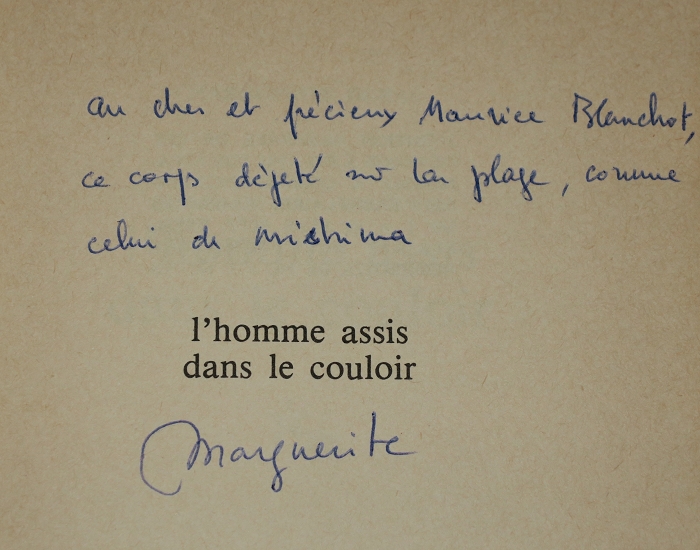 au cher et précieux Maurice Blanchot,
ce corps déjeté sur la plage, comme
celui de mishima
l'homme assis
dans le couloir
Marguerite